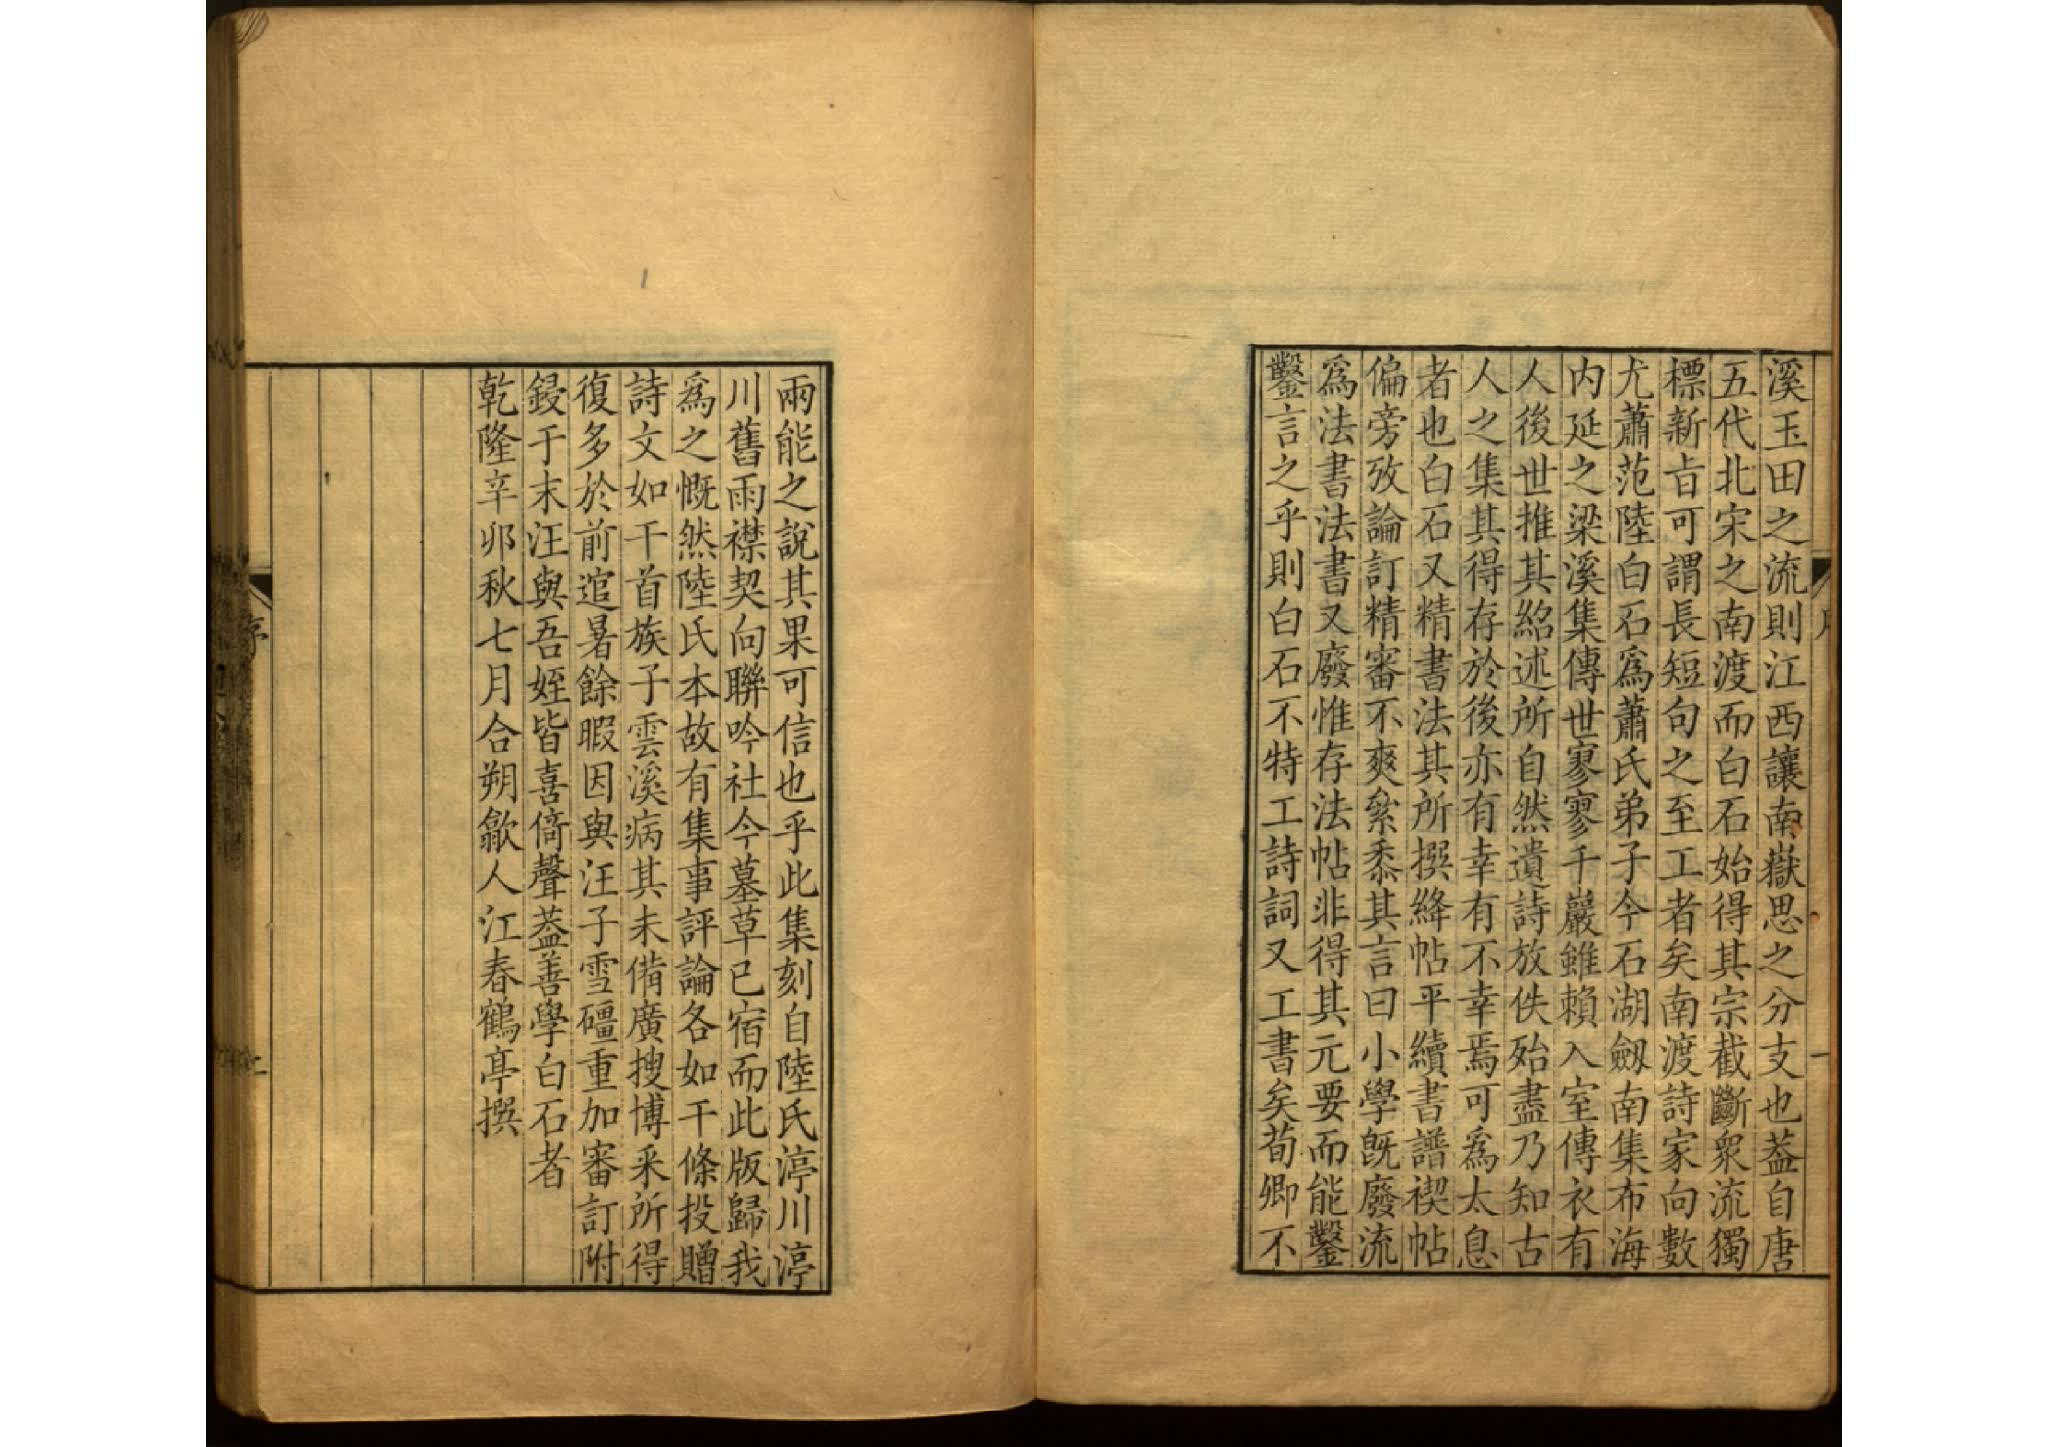 溪玉田之流則江西讓南嶽思之分支也葢自唐
五代北宋之南渡而白石始得其宗截斷衆流獨
標新㫖可謂長短句之至工者矣南渡詩家向數
尤蕭范陸白石爲蕭氏弟子今石湖劔南集布海
内延之梁溪集傳世寥寥千巖雖賴入室傳衣有
人後世推其紹述所自然遺詩放佚殆盡乃知古
人之集其得存於後亦有幸有不幸焉可爲太息
者也白石又精書法其所撰絳帖平續書譜禊帖
偏旁攷論訂精審不爽絫黍其言曰小學旣廢流
爲法書法書又廢惟存法帖非得其元要而能鑿
鑿言之乎則白石不特工詩詞又工書矣荀卿不
兩能之說其果可信也乎此集刻自陸氏渟川渟
川舊雨襟契向聯吟社今墓草已宿而此版歸我
爲之慨然陸氏本故有集事評論各如干條投贈
詩文如干首族子雲溪病其未備廣搜博采所得
復多於前逭暑餘暇因與汪子雪礓重加審訂附
鋟于末汪與吾姪皆喜倚聲葢善學白石者
乾隆辛卯秋七月合朔歙人江春鶴亭撰
序